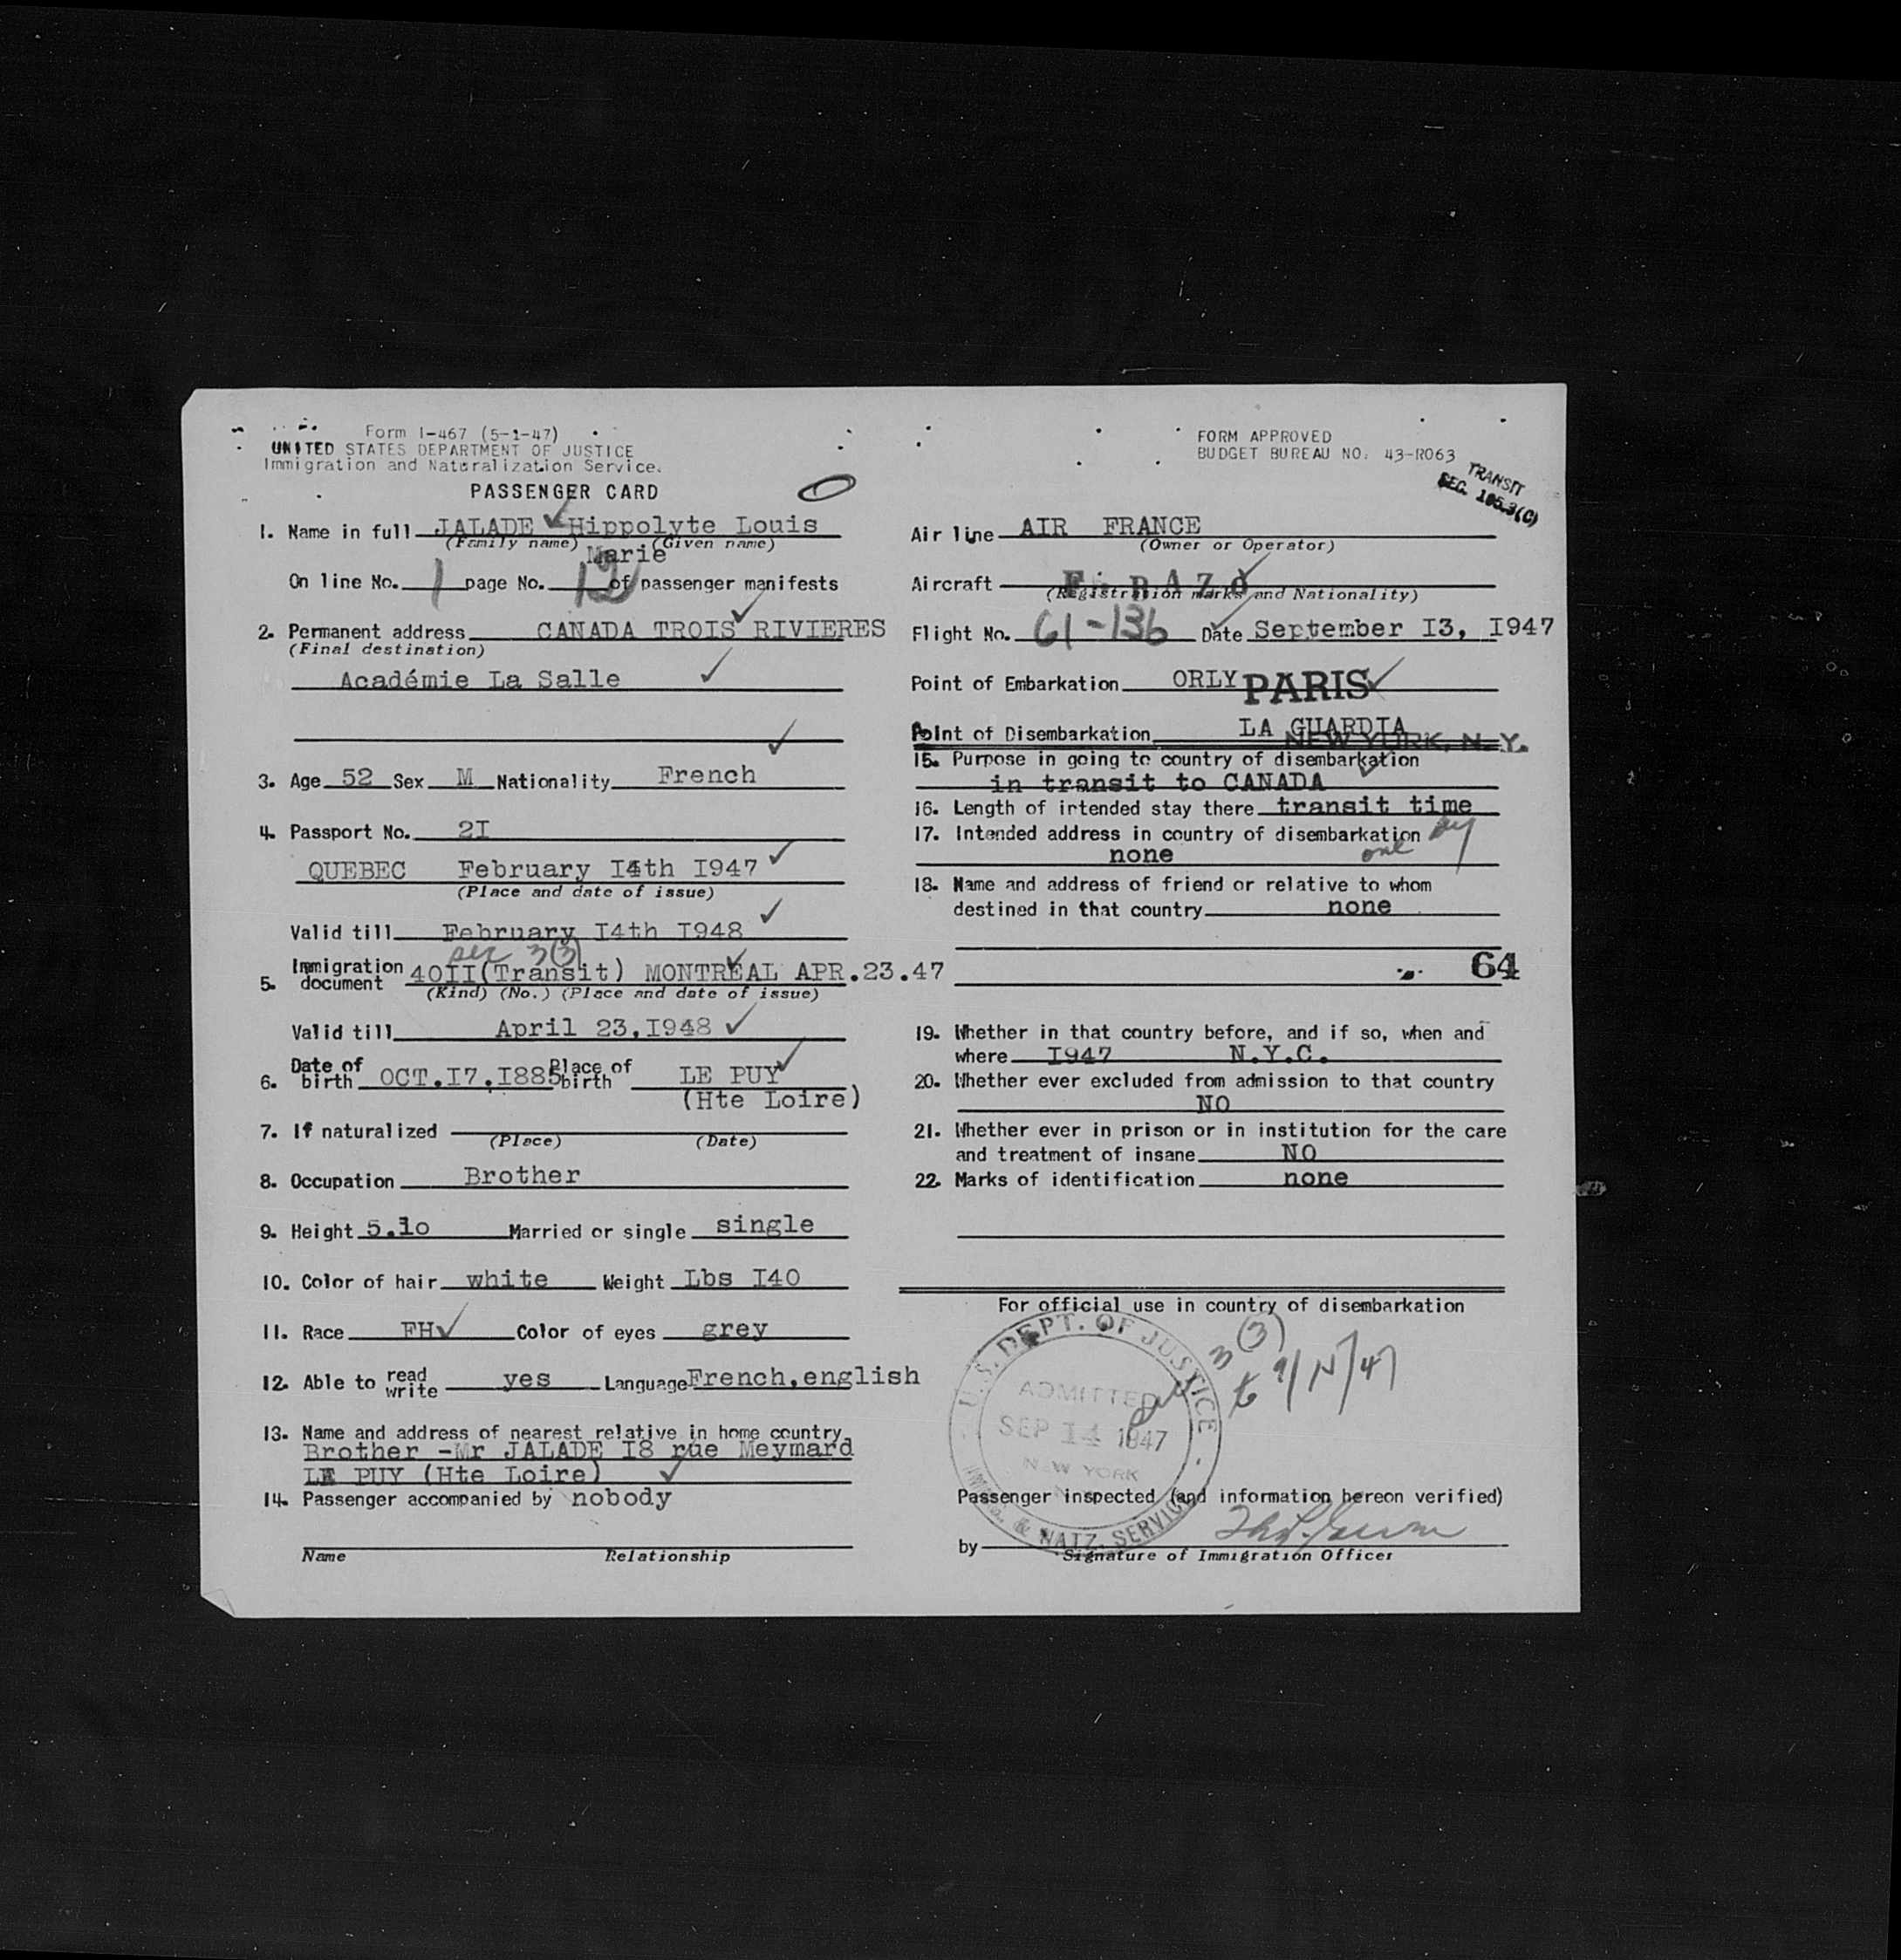 Form I-467 (5-1-47)
UNITED STATES DEPARTMENT OF JUSTICE
Immigration and Naturalization Service.
PASSENGER CARD
1. Name in full JALADE Hippolyte Louis
(Family name) (Given name)
Marie
On line No. 1 page No. 12 of passenger manifests
2. Permanent address CANADA TROIS RIVIERES
(Final destination)
Académie La Salle
3. Age 52 Sex M Nationality French
4. Passport No. 2I
QUEBEC February I4th I947
(Place and date of issue)
Valid till February I4th I948
sec 3(3)
5. Immigration document 40II(Transit) MONTREAL APR.23.47
(Kind) (No.) (Place and date of issue)
Valid till April 23,I948
6. Date of birth OCT.I7.I885 Place of birth LE PUY
(Hte Loire)
7. If naturalized
(Place) (Date)
8. Occupation Brother
9. Height 5.10 Married or single single
10. Color of hair white Weight Lbs I40
11. Race FH Color of eyes grey
12. Able to read write yes Language French,english
13. Name and address of nearest relative in home country
Brother -Mr JALADE I8 rue Meymard
LE PUY (Hte Loire)
14. Passenger accompanied by nobody
Name Relationship
FORM APPROVED
BUDGET BUREAU NO. 43-R063
TRANSIT
SEC. 105.3(C)
Air line AIR FRANCE
(Owner or Operator)
Aircraft F. BAZO
(Registration marks and Nationality)
Flight No. 61-136 Date September I3, I947
Point of Embarkation ORLY PARIS
Point of Disembarkation LA GUARDIA
NEW YORK, N.Y.
15. Purpose in going to country of disembarkation
in transit to CANADA
16. Length of intended stay there transit time
17. Intended address in country of disembarkation
none one day
18. Name and address of friend or relative to whom
destined in that country none
64
19. Whether in that country before, and if so, when and
where I947 N.Y.C.
20. Whether ever excluded from admission to that country
NO
21. Whether ever in prison or in institution for the care
and treatment of insane NO
22. Marks of identification none
For official use in country of disembarkation
U.S. DEPT. OF JUSTICE
ADMITTED
SEP 14 1947
NEW YORK
IMM. & NATZ. SERVICE
3(3)
Passenger inspected (and information hereon verified)
by
Signature of Immigration Officer